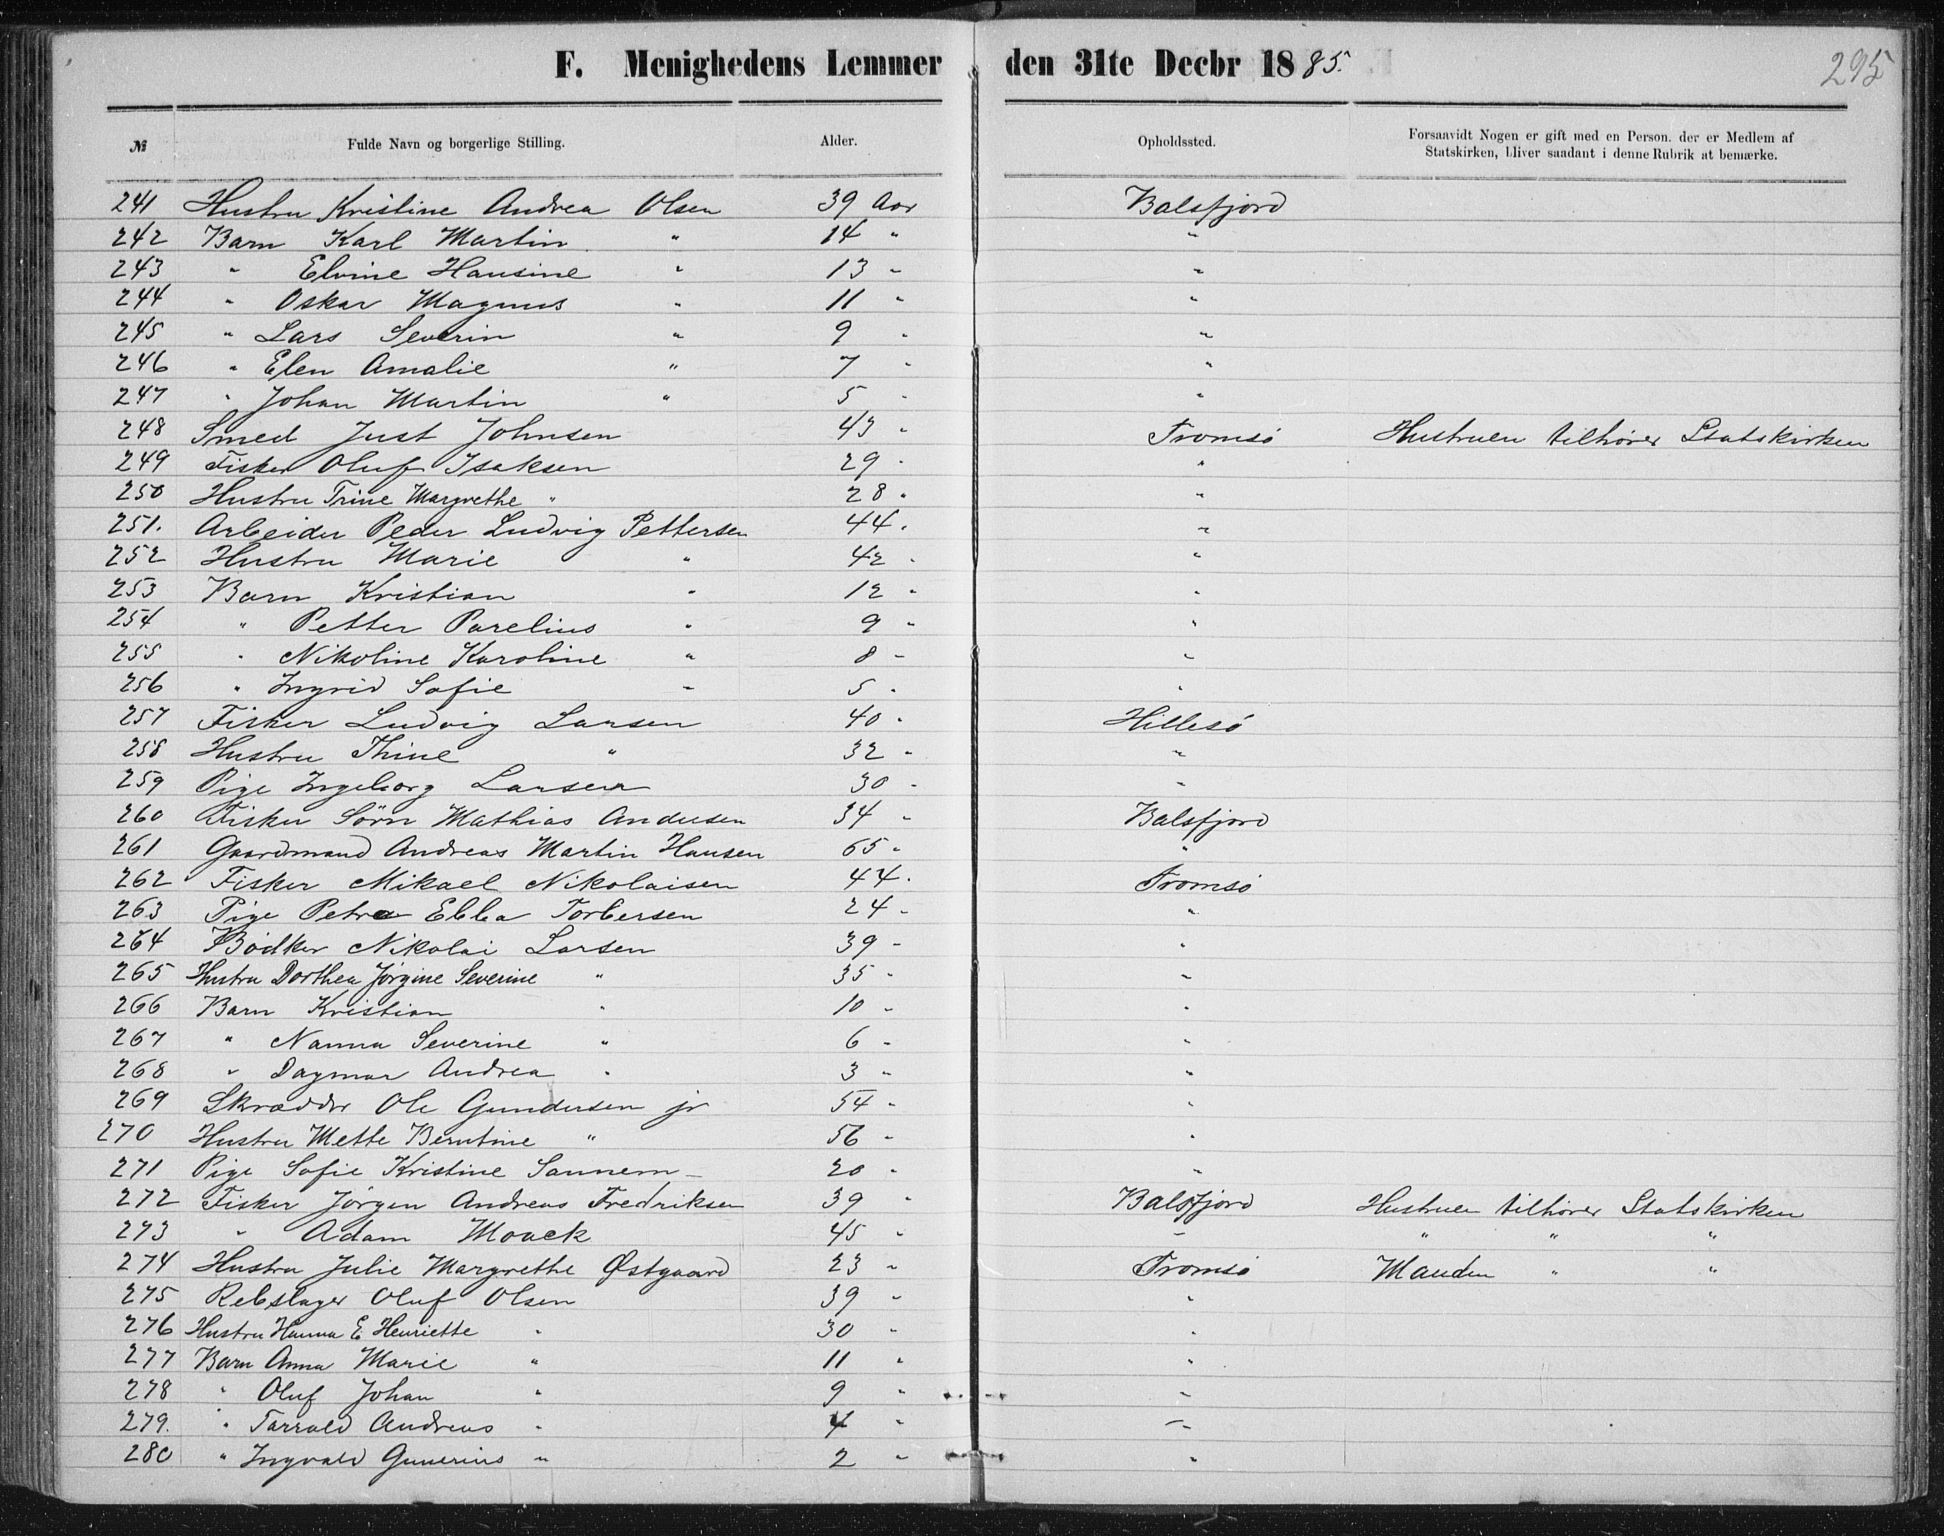 F. Menighedens Lemmer den 31te Decbr 1885. 295
№ Fulde Navn og borgerlige Stilling. Alder. Opholdssted. Forsaavidt Nogen er gift med en Person, der er Medlem af
Statskirken, bliver saadant i denne Rubrik at bemærke.
241 Hustru Kristine Andrea Olsen 39 Aar Balsfjord
242 Barn Karl Martin " 14 " "
243 " Elvine Hansine " 13 " "
244 " Oskar Magnus " 11 " "
245 " Lars Severin " 9 " "
246 " Elen Amalie " 7 " "
247 " Johan Martin " 5 " "
248 Smed Just Johnsen 43 " Tromsø Hustruen tilhører Statskirken
249 Fisker Oluf Isaksen 29 " "
250 Hustru Trine Margrethe " 28 " "
251. Arbeider Peder Ludvig Pettersen 44 " "
252 Hustru Marie " 42 " "
253 Barn Kristian " 12 " "
254 " Petter Parelius " 9 " "
255 " Nikoline Karoline " 8 " "
256 " Ingrid Sofie " 5 " "
257 Fisker Ludvig Larsen 40 " Hillesø
258 Hustru Thine " 32 " "
259 Pige Ingeborg Larsen 30 " "
260 Fisker Sørn Mathias Andersen 34 " Balsfjord
261 Gaardmand Andreas Martin Hansen 65 " "
262 Fisker Mikael Nikolaisen 44 " Tromsø
263 Pige Petra Ebba Torbersen 24 " "
264 Bødker Nikolai Larsen 39 " "
265 Hustru Dorthea Jørgine Severine " 35 " "
266 Barn Kristian " 10 " "
267 " Nanna Severine " 6 " "
268 " Dagmar Andrea " 3 " "
269 Skrædder Ole Gundersen jr 54 " "
270 Hustru Mette Berntine " 56 " "
271 Pige Sofie Kristine Sannem 20 " "
272 Fisker Jørgen Andreas Fredriksen 39 " Balsfjord Hustruen tilhører Statskirken
273 " Adam Mowek 45 " " " " "
274 Hustru Julie Margrethe Østgaard 23 " Tromsø Manden " "
275 Rebslager Oluf Olsen 39 " "
276 Hustru Hanna E Henriette " 30 " "
277 Barn Anna Marie " 11 " "
278 " Oluf Johan " 9 " "
279. " Tarrald Andreas " 4 " "
280 " Ingvald Gunerius " 2 " "